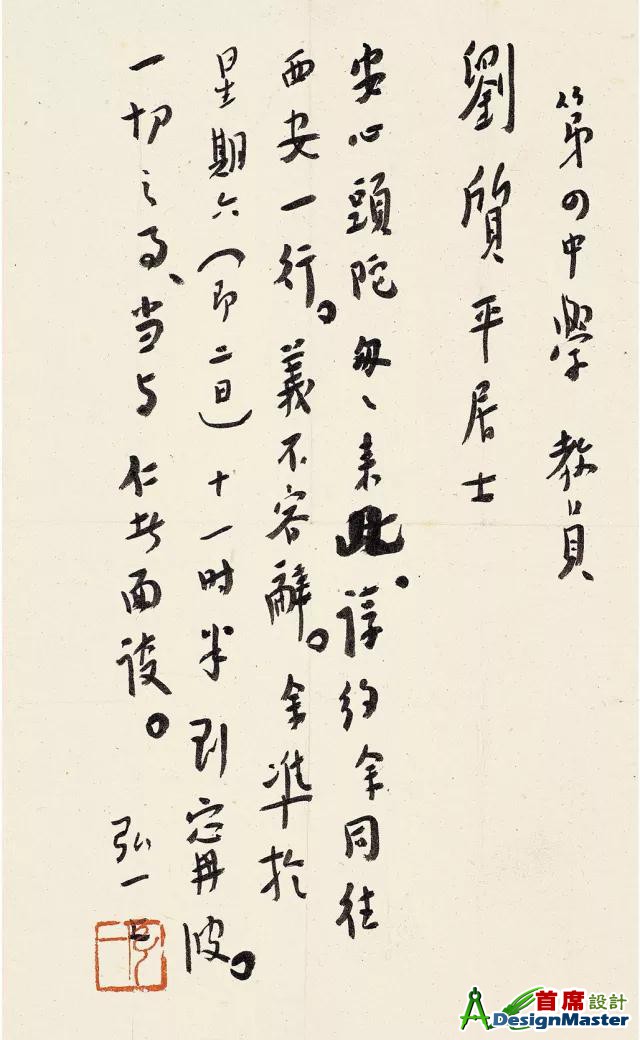 第四中學 教員
劉質平居士
安心頭陀匆、來此。諄約余同往
西安一行。義不容辭。余準於
星期六（即二日）十一时半到寗再波。
一切之事、当与仁者面談。
弘一
首席設計
DesignMaster